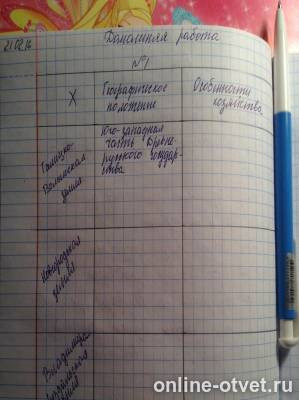 21.02.16
Домашняя работа
№1
X
Географическое
положение
Особенности
хозяйства
Галицко-
Волынская
земля
Юго-западная
часть Древне-
русского государ-
ства
Новгородская
земля
Владимиро-
online-otvet.ru